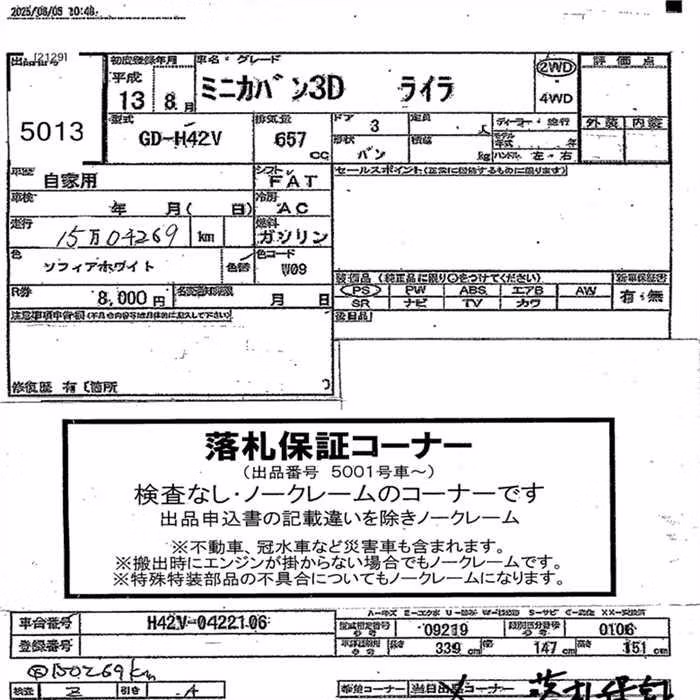 2025/08/05 10:48
出品番号 [2129]
5013
初度登録年月
平成
13 8月
車名・グレード
ミニカバン3D ライラ
2WD
4WD
評価点
外装 内装
型式
GD-H42V
排気量
657 cc
ドア 3
形状 バン
定員 人
積載 kg
ディーラー・並行
モデル年式 年
ハンドル 左・右
車歴 自家用
シフト FAT
車検 年 月( 日)
冷房 AC
走行 15万04269 km
燃料 ガソリン
色 ソフィアホワイト
色替
色コード W09
R券 8,000円
名変期限 月 日
セールスポイント(正常に機能するものに限ります)
装備品 (純正品に限り○をつけてください)
新車保証書
PS PW ABS エアB AW
有・無
SR ナビ TV カワ
後日品
注意事項申告欄
修復歴 有 (箇所 )
落札保証コーナー
(出品番号 5001号車~)
検査なし・ノークレームのコーナーです
出品申込書の記載違いを除きノークレーム
※不動車、冠水車など災害車も含まれます。
※搬出時にエンジンが掛からない場合でもノークレームです。
※特殊特装部品の不具合についてもノークレームになります。
車台番号 H42V-0422106
登録番号
型式指定番号 09219
類別区分番号 0106
長さ 339 cm 幅 147 cm 高さ 151 cm
150269km
検査 2 引き A
希望コーナー 当日出品コーナー
落札保証